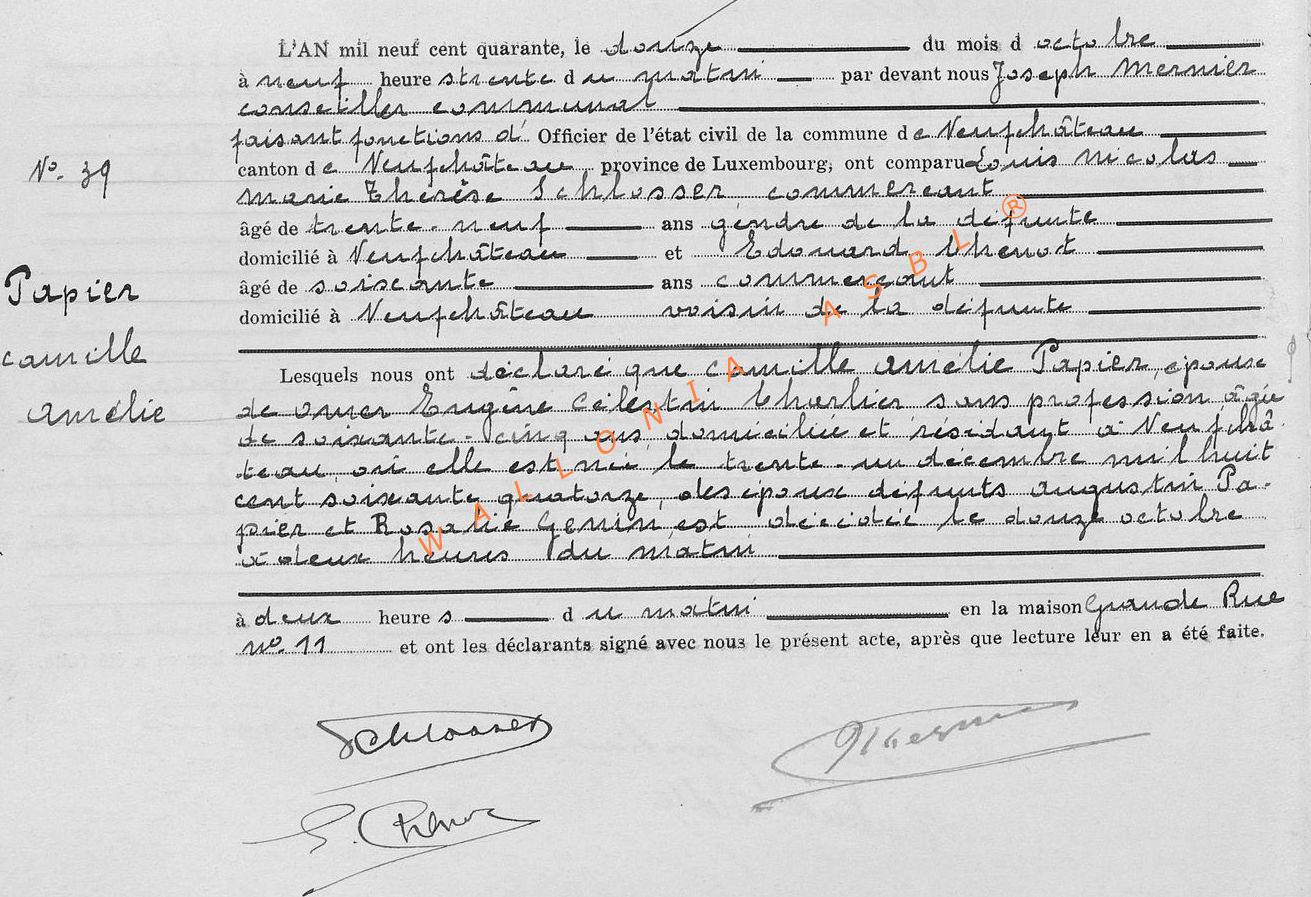 L'AN mil neuf cent quarante, le douze du mois d octobre
à neuf heure s trente d u matin par devant nous Joseph Mernier
conseiller communal
faisant fonctions d' Officier de l'état civil de la commune de Neufchâteau
canton de Neufchâteau province de Luxembourg, ont comparu Louis Nicolas
Marie Thérèse Schlosser commerçant
âgé de trente-neuf ans gendre de la défunte
domicilié à Neufchâteau et Edouard Chenot
âgé de soixante ans commerçant
domicilié à Neufchâteau voisin de la défunte
N°. 39
Papier
Camille
Amélie
Lesquels nous ont déclaré que Camille Amélie Papier, épouse
de Omer Eugène Célestin Charlier sans profession âgée
de soixante-cinq ans domiciliée et résidant à Neufchâ
teau, où elle est née le trente-un décembre mil huit
cent soixante quatorze, des époux défunts Augustin Pa-
pier et Rosalie Genin, est décédée le douze octobre
à deux heures du matin
à deux heure s d u matin en la maison Grande Rue
n°. 11 et ont les déclarants signé avec nous le présent acte, après que lecture leur en a été faite.
Schlosser
E. Chenot
WALLONIA ASBL ®